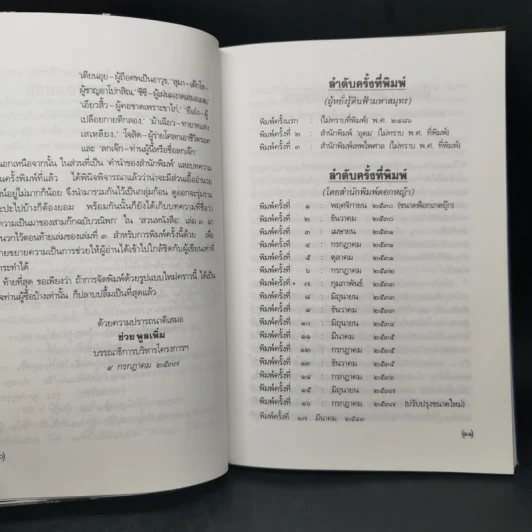 'เตียนอุย-ผู้ถือศพเป็นอาวุธ, 'สุมา-เต๊กโช-
ผู้ชาญอาโปกสิณ', 'ชีซี-ผู้เผ่นผงาดเสมอแมน',
'เอียวสิ้ว-ผู้คอขาดเพราะขาไก่', 'ยีเอ๋ง-ผู้
เปลือยกายตีกลอง', 'ม้าเฉียว-ทายาทแห่ง
เสเหลียง', 'โจสิด-ผู้ร่ายโศลกเอาชีวิตรอด'
และ 'ลกเจ๊ก-ท่านผู้นี้หรือชื่อลกเจ๊ก'
นอกเหนือจากนั้น ในส่วนที่เป็น 'คำนำของสำนักพิมพ์' และบทความ
ได้พินิจพิจารณาแล้วว่าน่าจะมีส่วนเอื้ออำนวย
น์อยู่ไม่มากก็น้อย จึงนำมารวมกันไว้เป็นกลุ่มก้อน ดูออกจะรุงรัง
ปะไปบ้างก็ต้องยอม พร้อมกันนั้นก็ยังได้เก็บบทความที่ชื่อว่า
ความเป็นมาของสามก๊กฉบับวณิพก' ใน 'สวนหนังสือ' เล่ม ๑๙ มา
นวกไว้ตอนท้ายเล่มของเล่มที่ ๓ สำหรับการพิมพ์ครั้งนี้ด้วย เพื่อ
ขยายความเป็นการช่วยให้ผู้อ่านได้เข้าไปใกล้ชิดกับผู้เขียนเท่าที่
กระทำได้
ท้ายที่สุด ขอเพียงว่า ถ้าการจัดพิมพ์ด้วยรูปแบบใหม่คราวนี้ ได้เป็น
ท่านผู้ซื้อบ้างเท่านั้น ก็ปลาบปลื้มเป็นที่สุดแล้ว
ด้วยความปรารถนาดีเสมอ
ช่วย พูลเพิ่ม
บรรณาธิการบริหารโครงการฯ
๔ กรกฎาคม ๒๕๓๗
ลำดับครั้งที่พิมพ์
(ผู้หยั่งรู้ดินฟ้ามหาสมุทร)
พิมพ์ครั้งแรก : (ไม่ทราบที่พิมพ์) พ.ศ. ๒๔๘๖
พิมพ์ครั้งที่ ๒ : สำนักพิมพ์ 'อุดม' (ไม่ทราบ พ.ศ. ที่พิมพ์)
พิมพ์ครั้งที่ ๓ : สำนักพิมพ์เทพไพศาล (ไม่ทราบ พ.ศ. ที่พิมพ์)
ลำดับครั้งที่พิมพ์
(โดยสำนักพิมพ์ดอกหญ้า)
พิมพ์ครั้งที่ ๑ : พฤศจิกายน ๒๕๓๐ (ขนาดพ็อกเกตบุ๊ก)
พิมพ์ครั้งที่ ๒ : ธันวาคม ๒๕๓๐
พิมพ์ครั้งที่ ๓ : เมษายน ๒๕๓๑
พิมพ์ครั้งที่ ๔ : กรกฎาคม ๒๕๓๑
พิมพ์ครั้งที่ ๕ : ตุลาคม ๒๕๓๑
พิมพ์ครั้งที่ ๖ : กรกฎาคม ๒๕๓๒
พิมพ์ครั้งที่ ๗ : กุมภาพันธ์ ๒๕๓๓
พิมพ์ครั้งที่ ๘ : มิถุนายน ๒๕๓๓
พิมพ์ครั้งที่ ๙ : ธันวาคม ๒๕๓๓
พิมพ์ครั้งที่ ๑๐ : มิถุนายน ๒๕๓๔
พิมพ์ครั้งที่ ๑๑ : มีนาคม ๒๕๓๕
พิมพ์ครั้งที่ ๑๒ : กรกฎาคม ๒๕๓๕
พิมพ์ครั้งที่ ๑๓ : ธันวาคม ๒๕๓๕
พิมพ์ครั้งที่ ๑๔ : กรกฎาคม ๒๕๓๖
พิมพ์ครั้งที่ ๑๕ : มิถุนายน ๒๕๓๗
พิมพ์ครั้งที่ ๑๖ : กรกฎาคม ๒๕๓๗ (ปรับปรุงขนาดใหม่)
พิมพ์ครั้งที่ ๑๗ มีนาคม ๒๕๔๑
(๑๑)